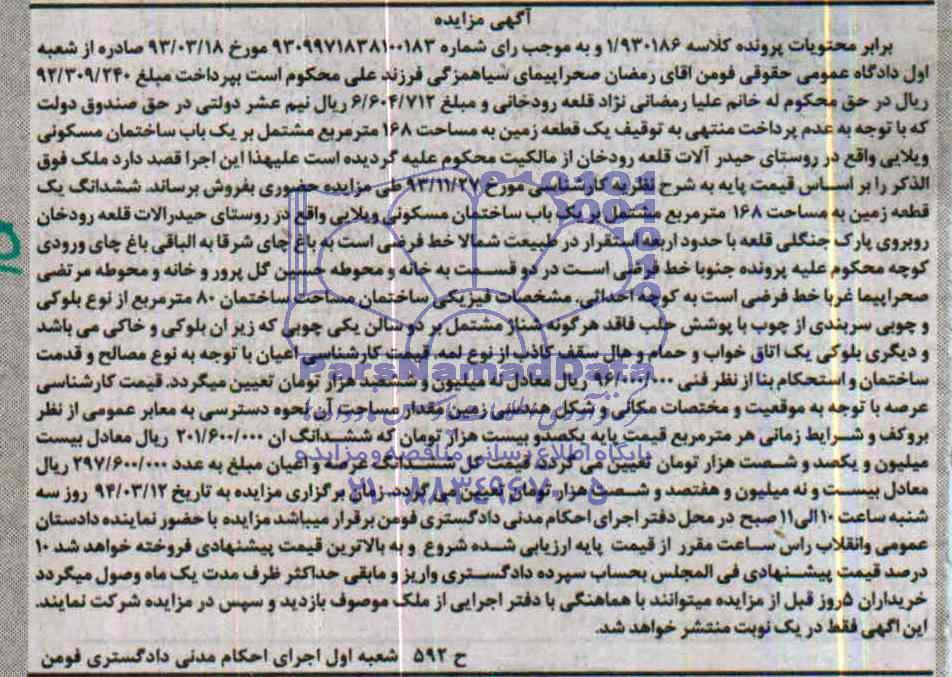 آگهی مزایده
برابر محتویات پرونده کلاسه ۱/۹۳۰۱۸۶ و به موجب رای شماره ۹۳۰۹۹۷۱۸۳۸۱۰۰۱۸۳ مورخ ۹۳/۰۳/۱۸ صادره از شعبه
اول دادگاه عمومی حقوقی فومن اقای رمضان صحراپیمای سیاهمزگی فرزند علی محکوم است بپرداخت مبلغ ۹۲/۳۰۹/۲۴۰
ریال در حق محکوم له خانم علیا رمضانی نژاد قلعه رودخانی و مبلغ ۶/۶۰۴/۷۱۲ ریال نیم عشر دولتی در حق صندوق دولت
که با توجه به عدم پرداخت منتهی به توقیف یک قطعه زمین به مساحت ۱۶۸ مترمربع مشتمل بر یک باب ساختمان مسکونی
ویلایی واقع در روستای حیدر آلات قلعه رودخان از مالکیت محکوم علیه گردیده است علیهذا این اجرا قصد دارد ملک فوق
الذکر را بر اساس قیمت پایه به شرح نظریه کارشناسی مورخ ۹۳/۱۱/۲۷ طی مزایده حضوری بفروش برساند. ششدانگ یک
قطعه زمین به مساحت ۱۶۸ مترمربع مشتمل بر یک باب ساختمان مسکونی ویلایی واقع در روستای حیدرالات قلعه رودخان
روبروی پارک جنگلی قلعه با حدود اربعه استقرار در طبیعت شمالا خط فرضی است به باغ چای شرقا به الباقی باغ چای ورودی
کوچه محکوم علیه پرونده جنوبا خط فرضی است در دو قسمت به خانه و محوطه حسین گل پرور و خانه و محوطه مرتضی
صحراپیما غربا خط فرضی است به کوچه احداثی. مشخصات فیزیکی ساختمان مساحت ساختمان ۸۰ مترمربع از نوع بلوکی
و چوبی سربندی از چوب با پوشش حلب فاقد هرگونه شناژ مشتمل بر دو سالن یکی چوبی که زیر ان بلوکی و خاکی می باشد
و دیگری بلوکی یک اتاق خواب و حمام و هال سقف کاذب از نوع لمه. قیمت کارشناسی اعیان با توجه به نوع مصالح و قدمت
ساختمان و استحکام بنا از نظر فنی ۹۶/۰۰۰/۰۰۰ ریال معادل نه میلیون و ششصد هزار تومان تعیین میگردد. قیمت کارشناسی
عرصه با توجه به موقعیت و مختصات مکانی و شکل هندسی زمین مقدار مساحت آن نحوه دسترسی به معابر عمومی از نظر
بروکف و شرایط زمانی هر مترمربع قیمت پایه یکصدو بیست هزار تومان که ششدانگ ان ۲۰۱/۶۰۰/۰۰۰ ریال معادل بیست
میلیون و یکصد و شصت هزار تومان تعیین می گردد. قیمت کل ششدانگ عرصه و اعیان مبلغ به عدد ۲۹۷/۶۰۰/۰۰۰ ریال
معادل بیست و نه میلیون و هفتصد و شصت هزار تومان تعیین می گردد. زمان برگزاری مزایده به تاریخ ۹۴/۰۳/۱۲ روز سه
شنبه ساعت ۱۰ الی ۱۱ صبح در محل دفتر اجرای احکام مدنی دادگستری فومن برقرار میباشد مزایده با حضور نماینده دادستان
عمومی وانقلاب راس ساعت مقرر از قیمت پایه ارزیابی شده شروع و به بالاترین قیمت پیشنهادی فروخته خواهد شد ۱۰
درصد قیمت پیشنهادی فی المجلس بحساب سپرده دادگستری واریز و مابقی حداکثر ظرف مدت یک ماه وصول میگردد
خریداران ۵روز قبل از مزایده میتوانند با هماهنگی با دفتر اجرایی از ملک موصوف بازدید و سپس در مزایده شرکت نمایند.
این اگهی فقط در یک نوبت منتشر خواهد شد.
ح ۵۹۲ شعبه اول اجرای احکام مدنی دادگستری فومن
ParsNamadData
پایگاه اطلاع رسانی مناقصه و مزایده
۰۲۱-۸۸۳۴۹۶۷۰-۵